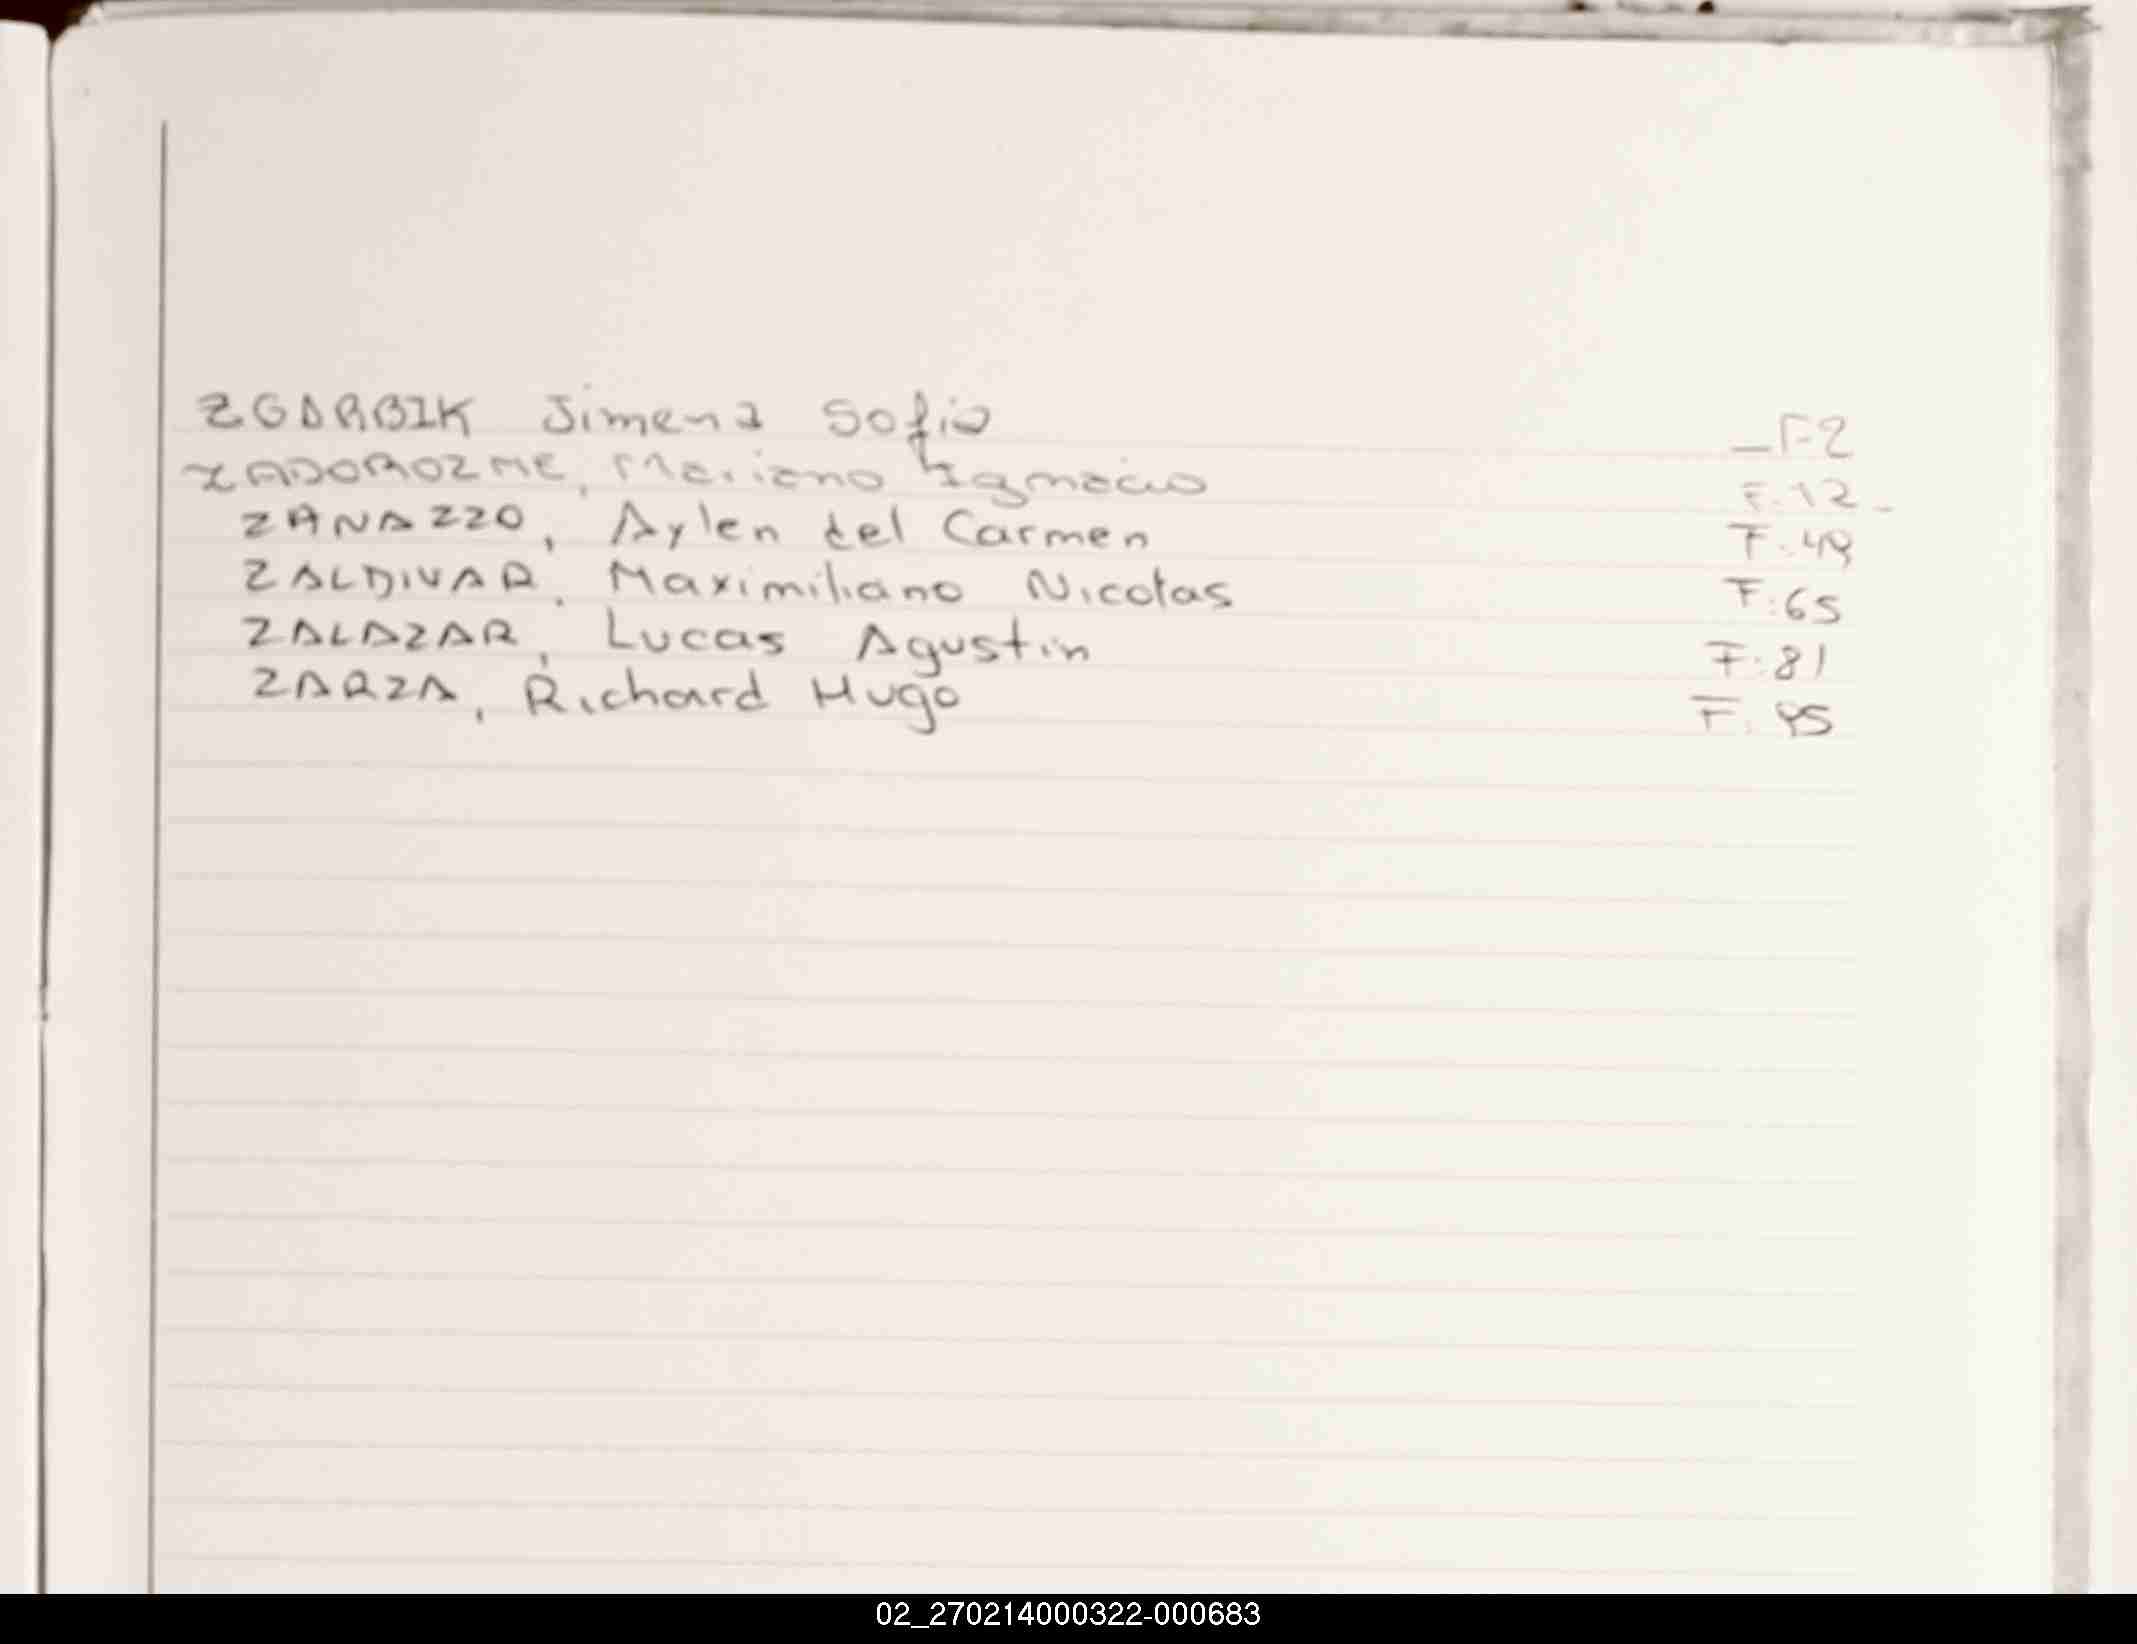 ZGARBIK Jimena Sofia _F2
ZADOROZNE, Mariano Ignacio F.12_
ZANAZZO, Aylen del Carmen F.49
ZALDIVAR. Maximiliano Nicolas F:65
ZALAZAR, Lucas Agustin F.81
ZARZA, Richard Hugo F.
02_270214000322-000683